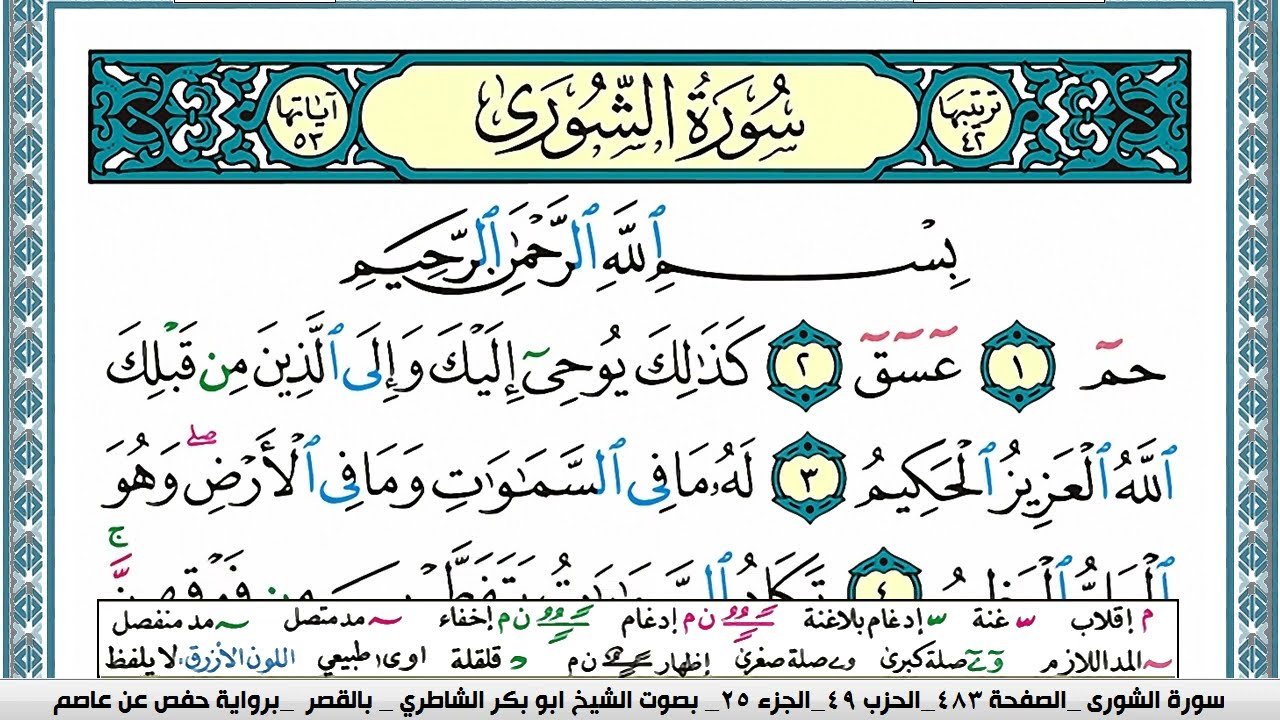 ترتيبها ٤٢ سُورَةُ الشُّورَىٰ آياتها ٥٣
بِسْمِ ٱللَّهِ ٱلرَّحْمَٰنِ ٱلرَّحِيمِ
حمٓ ١ عٓسٓقٓ ٢ كَذَٰلِكَ يُوحِىٓ إِلَيْكَ وَإِلَى ٱلَّذِينَ مِن قَبْلِكَ
ٱللَّهُ ٱلْعَزِيزُ ٱلْحَكِيمُ ٣ لَهُۥ مَا فِى ٱلسَّمَٰوَٰتِ وَمَا فِى ٱلْأَرْضِ ۖ وَهُوَ
ٱلْعَلِىُّ ٱلْعَظِيمُ ٤ تَكَادُ ٱلسَّمَٰوَٰتُ يَتَفَطَّرْنَ مِن فَوْقِهِنَّ ۚ
م إقلاب غنة إدغام بلاغنة ن م إدغام ن م إخفاء مد متصل مد منفصل
المد اللازم صلة كبرى صلة صغرى إظهار ن م قلقلة اوى طبيعي اللون الأزرق: لا يلفظ
سورة الشورى _الصفحة ٤٨٣_الحزب ٤٩_الجزء ٢٥_ بصوت الشيخ ابو بكر الشاطري _ بالقصر _برواية حفص عن عاصم